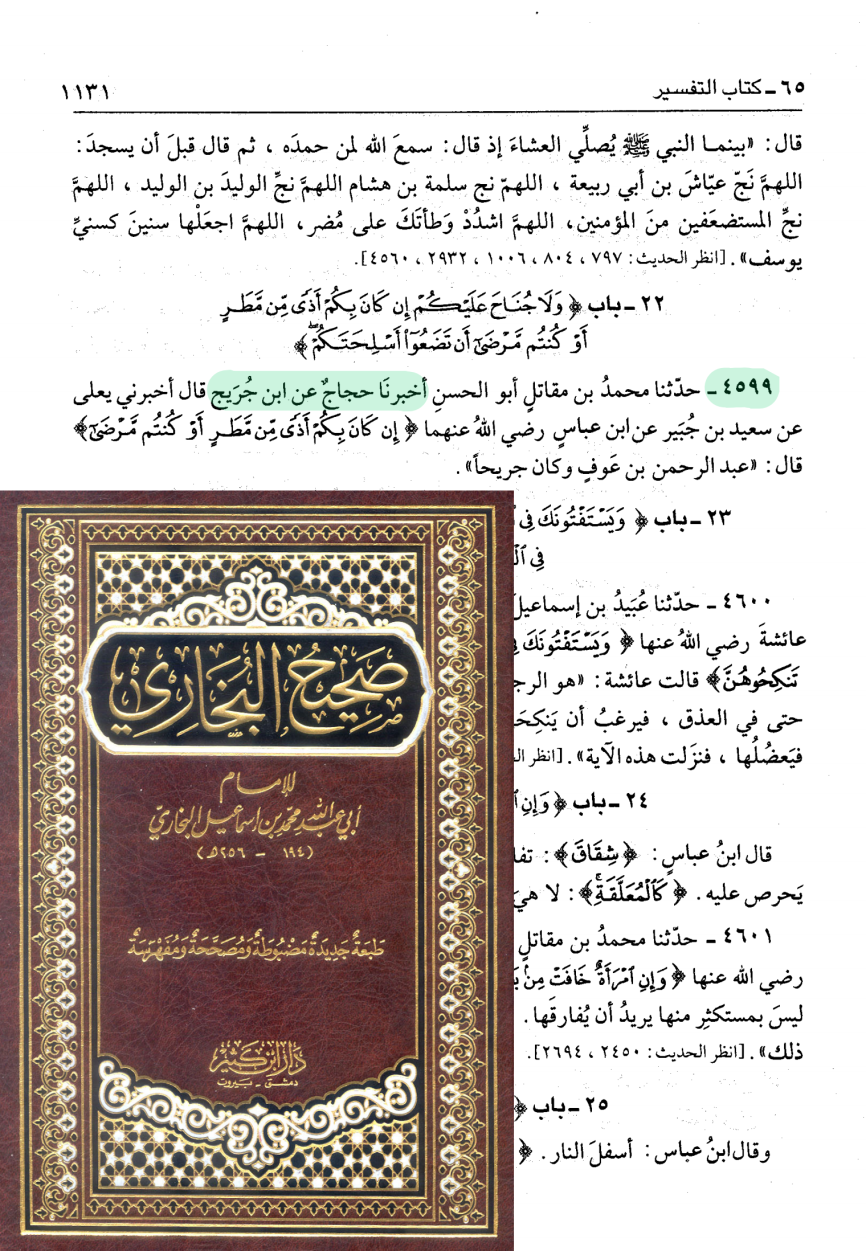 ٦٥ ـ كتاب التفسير ١١٣١
قال: «بينما النبي ﷺ يُصلِّي العشاءَ إذ قال: سمعَ الله لمن حمدَه ، ثم قال قبلَ أن يسجدَ:
اللهمَّ نَجّ عيّاشَ بن أبي ربيعة ، اللهمّ نج سلمة بن هشام اللهمَّ نجِّ الوليدَ بن الوليد ، اللهمَّ
نجِّ المستضعَفين منَ المؤمنين، اللهمَّ اشدُدْ وَطأتَكَ على مُضر، اللهمَّ اجعَلْها سنينَ كسنيِّ
يوسف». [انظر الحديث: ٧٩٧ ، ٨٠٤ ، ١٠٠٦ ، ٢٩٣٢ ، ٤٥٦٠].
٢٢ ـ باب ﴿ وَلَا جُنَاحَ عَلَيْكُمْ إِن كَانَ بِكُمْ أَذًى مِّن مَّطَرٍ
أَوْ كُنتُم مَّرْضَىٰٓ أَن تَضَعُوٓا۟ أَسْلِحَتَكُمْ ۖ﴾
٤٥٩٩ ـ حدّثنا محمدُ بن مقاتلٍ أبو الحسنِ أخبرنَا حجاجٌ عن ابن جُرَيج قال أخبرني يعلى
عن سعيد بن جُبَير عن ابن عباسٍ رضي اللهُ عنهما ﴿ إِن كَانَ بِكُمْ أَذًى مِّن مَّطَرٍ أَوْ كُنتُم مَّرْضَىٰٓ﴾
قال: «عبد الرحمن بن عَوفٍ وكان جريحاً».
٢٣ ـ باب ﴿ وَيَسْتَفْتُونَكَ فِى
فِى
٤٦٠٠ ـ حدّثنا عُبَيدُ بن إسماعيلَ
عائشةَ رضي اللهُ عنها ﴿ وَيَسْتَفْتُونَكَ فِى
تَنكِحُوهُنَّ﴾ قالت عائشة: «هو الرجـ
حتى في العذق ، فيرغبُ أن يَنكِحَـ
فيَعضُلُها ، فنزَلت هذه الآية». [انظر
٢٤ ـ باب ﴿ وَإِنِ
قال ابنُ عباسٍ: ﴿شِقَاقَ﴾: تفا
يَحرص عليه. ﴿ كَٱلْمُعَلَّقَةِ ۚ﴾: لا هيَ
٤٦٠١ ـ حدّثنا محمدُ بن مقاتلٍ
رضي الله عنها ﴿ وَإِنِ ٱمْرَأَةٌ خَافَتْ مِنۢ
ليسَ بمستكثرٍ منها يريدُ أن يُفارقَها.
ذلك». [انظر الحديث: ٢٤٥٠ ، ٢٦٩٤].
٢٥ ـ باب ﴿
وقال ابنُ عباس: أسفلَ النار. ﴿
صَحِيحُ البُخَارِي
للإمام
أبي عبد الله محمد بن إسماعيل البخاريّ
(١٩٤ - ٢٥٦هـ)
طبعةٌ جديدةٌ مَضبُوطةٌ ومُصَحَّحةٌ ومُفَهرَسَةٌ
دار ابن كثير
دمشق - بيروت